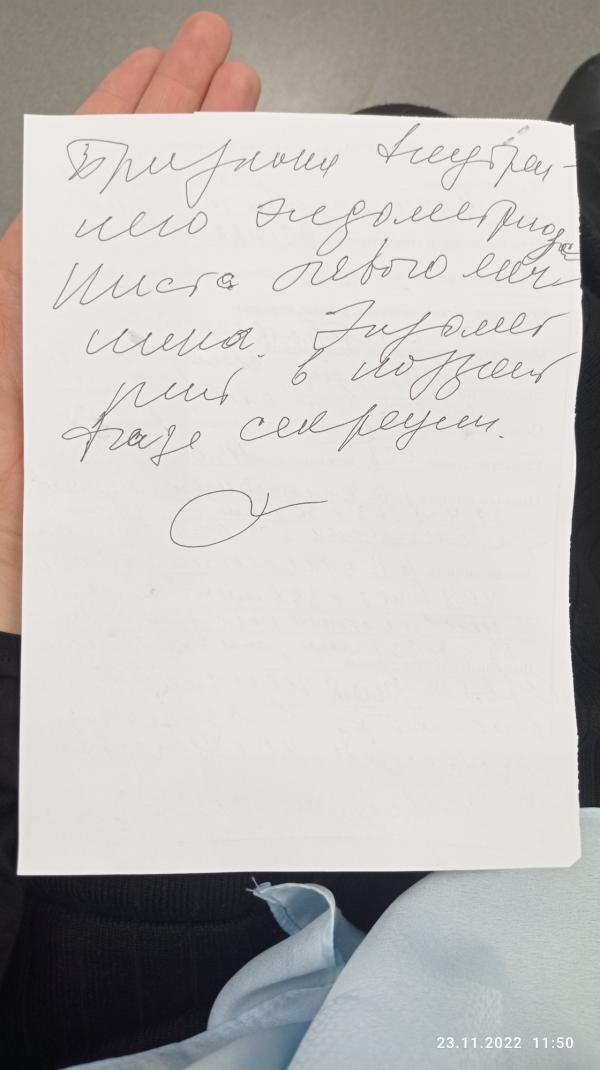 Признаки внутрен-
него эндометриоза
Киста левого яич
ника. Эндомет
рий в поздней
фазе секреции.
23.11.2022 11:50